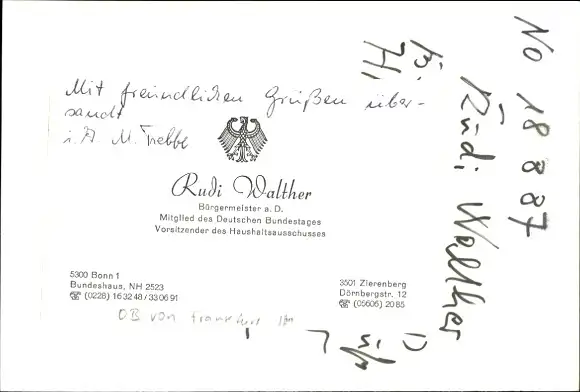 Mit freundlichen Grüßen über-
sandt
i. A. M. Trebbe
Rudi Walther
Bürgermeister a. D.
Mitglied des Deutschen Bundestages
Vorsitzender des Haushaltsausschusses
5300 Bonn 1
Bundeshaus, NH 2523
☏ (0228) 16 32 48 / 33 06 91
3501 Zierenberg
Dörnbergstr. 12
☏ (05606) 20 85
OB von Frankfurt
No 18 8 87
Rudi Walther